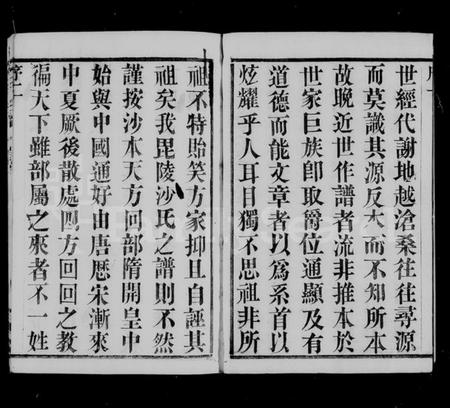 世經代謝地越滄桑往往尋源
而莫識其源反本而不知所本
故晩近世作譜者流非推本於
世家巨族卽取爵位通顯及有
道德而能文章者以爲系首以
炫耀乎人耳目獨不思祖非所
祖不特貽笑方家抑且自誣其
祖矣我毘陵沙氏之譜則不然
謹按沙本天方回部隋開皇中
始與中國通好由唐歷宋漸來
中夏厥後散處四方回回之敎
徧天下雖部屬之來者不一姓